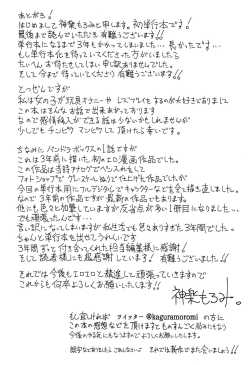 あとがき!
はじめまして神楽もろみと申します。初単行本です!
最後まで読んでいただき有難うございます!!
単行本になるまで3年もかかってしまいました…長かったです…
もし単行本化を待っていてくださった方がいましたら
たいへんお待たせしてしまい申し訳ありませんでした。
そして今まで待っていてくださり有難うございます!!
とつぜんですが
私は女の子が玩具オナニーや レズプレイをするのが大好きでありまして
この本はそんなお話で出来あがっております
なので感情移入ができる話は少ないかもしれませんが
少しでもチンピク マンピクして頂けたら幸いです。
ちなみに パンドラボックスの1話ですが
これは3年前に描いた初のエロ漫画作品でした。
この作品は当時アナログでペン入れをして
フォトショップでグレースケール塗りで仕上げた作品でしたが
今回の単行本用にフルデジタルでキャラクターなどを全て描き直しました。
なので3年前の作品ですが最新の作品でもあります。
他にも色々と加筆していますが反省点が多い1冊目になりました…
でも頑張ったんです…
言い訳になってしまいますが私生活でも色々ありすぎた3年間でした。
ちゃんと単行本を出せてうれしいです
3年間ずっと付き合ってくれた担当編集様に感謝!
そして読者様にも超感謝しています! 有難うございました!!
それでは今後もエロエロと精進して頑張っていきますので
これからも何卒よろしくお願いいたします!!
神楽もろみ。
もし宜しければ ツイッター @kaguramoromi の方に
この本の感想などを頂けますとものすごく励みになり
今後の予定にもなりますのでよろしくお願いいたします。
それでは新作でまた会いましょう!!